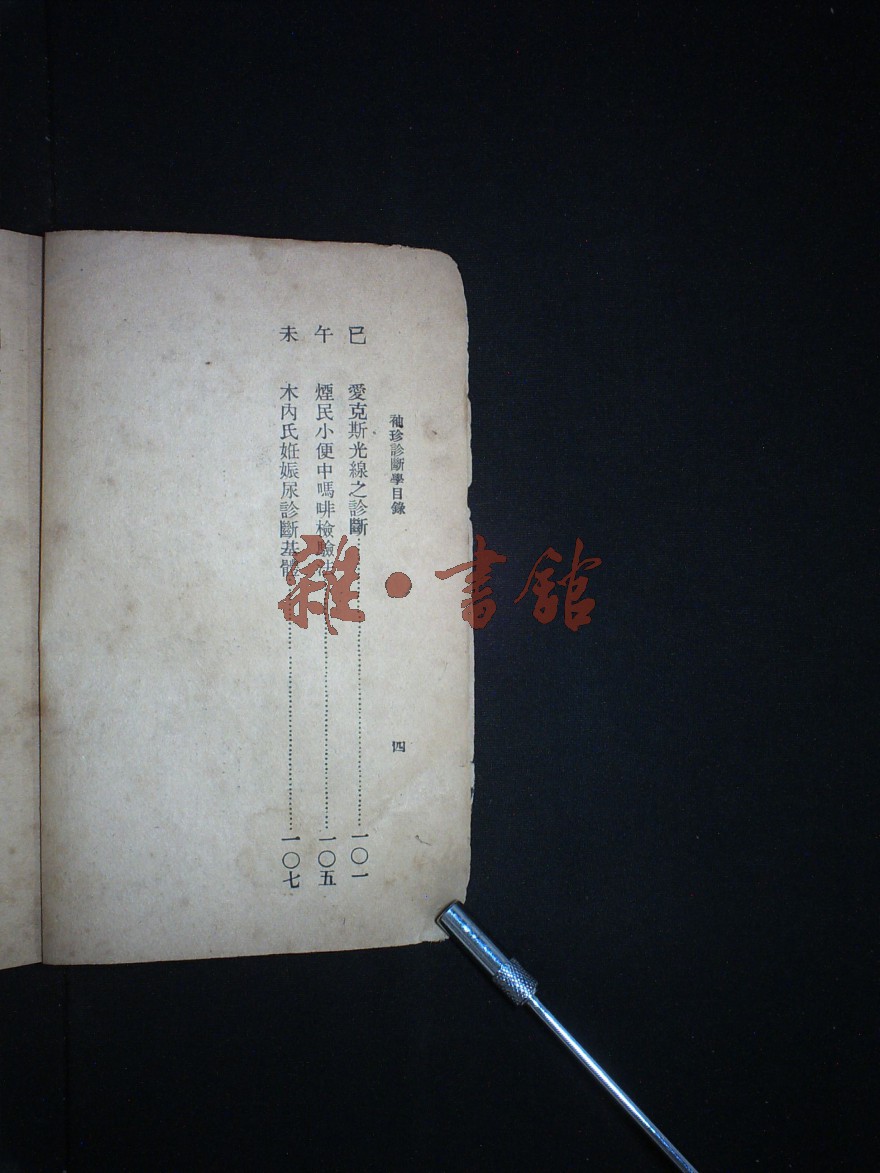 袖珍診斷學目錄 四
巳 愛克斯光線之診斷……一〇一
午 煙民小便中嗎啡檢驗法……一〇五
未 木內氏姙娠尿診斷基體……一〇七
雜·書館